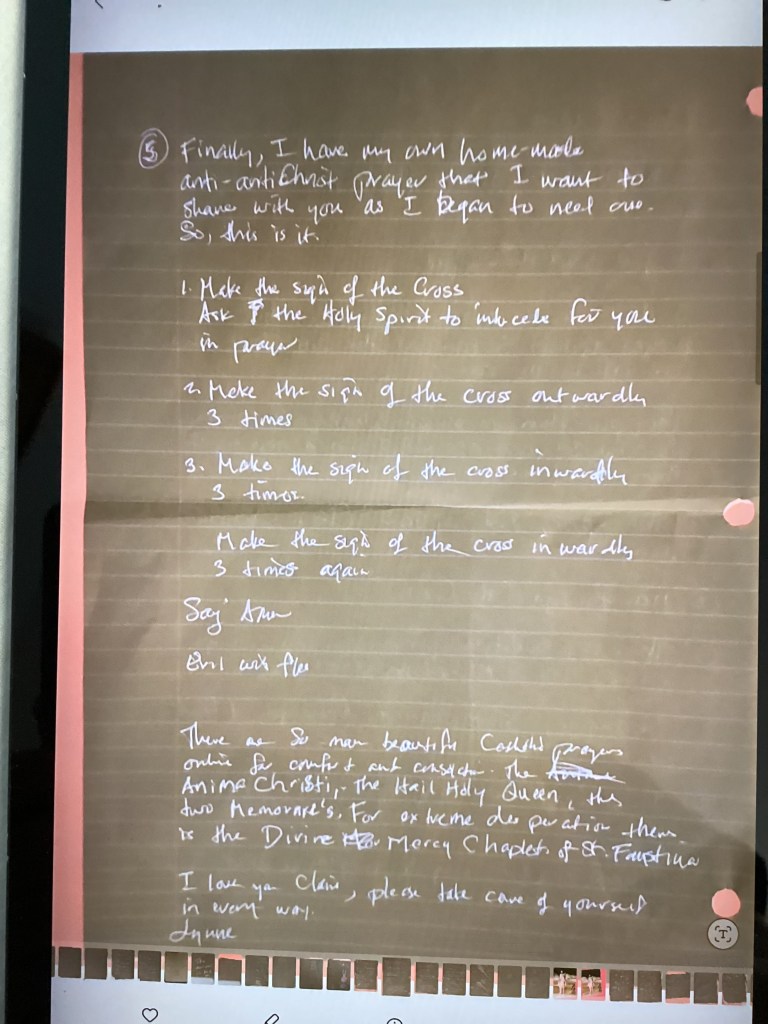 5 Finally, I have my own home-made
anti-antiChrist prayer that I want to
share with you as I began to need one.
So, this is it.
1. Make the sign of the Cross
Ask the Holy Spirit to intercede for you
in prayer
2. Make the sign of the cross outwardly
3 times
3. Make the sign of the cross inwardly
3 times.
Make the sign of the cross inwardly
3 times again
Say
Evil will flee
There are so many beautiful Catholic prayers
online for comfort and The
Anima Christi, The Hail Holy Queen, the
two Memorare's. For extreme desperation there
is the Divine Mercy Chaplet of St. Faustina
I love you Claire, please take care of yourself
in every way.
Lynne